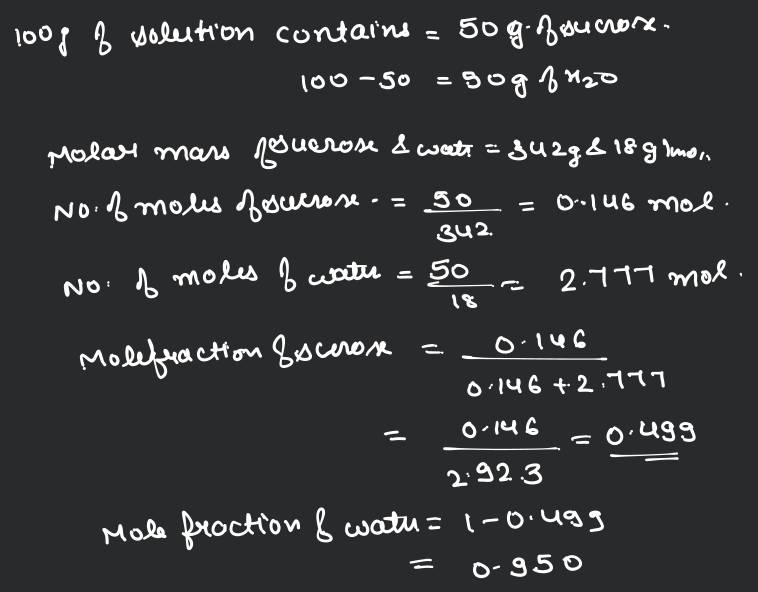 100g of solution contains = 50 g. of sucrose.
100 - 50 = 50g of H20
Molar mass of sucrose & water = 342g & 18 g/mol.
No. of moles of sucrose. = 50/342 = 0.146 mol.
No. of moles of water = 50/18 = 2.777 mol.
Molefraction of sucrose = 0.146/0.146 + 2.777
= 0.146/2.923 = 0.499
Mole fraction of water = 1-0.499
= 0.950